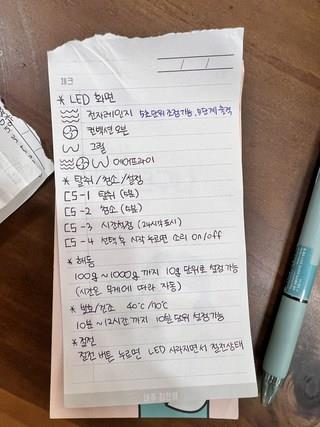 체크
* LED 화면
전자레인지 5초단위 조절가능, 5단계 출력
컨벡션 오븐
그릴
에어프라이
* 탈취/청소/설정
CS-1 탈취 (5분)
CS-2 청소 (5분)
CS-3 시간설정 (24시 표시)
CS-4 선택 후 시작 누르면 소리 on/off
* 해동
100g ~ 1000g 까지 10g 단위로 설정가능
(시간은 무게에 따라 자동)
* 발효/건조 40℃/110℃
10분 ~ 12시간 까지 10분 단위 설정가능
* 절전
절전 버튼 누르면 LED 사라지면서 절전상태